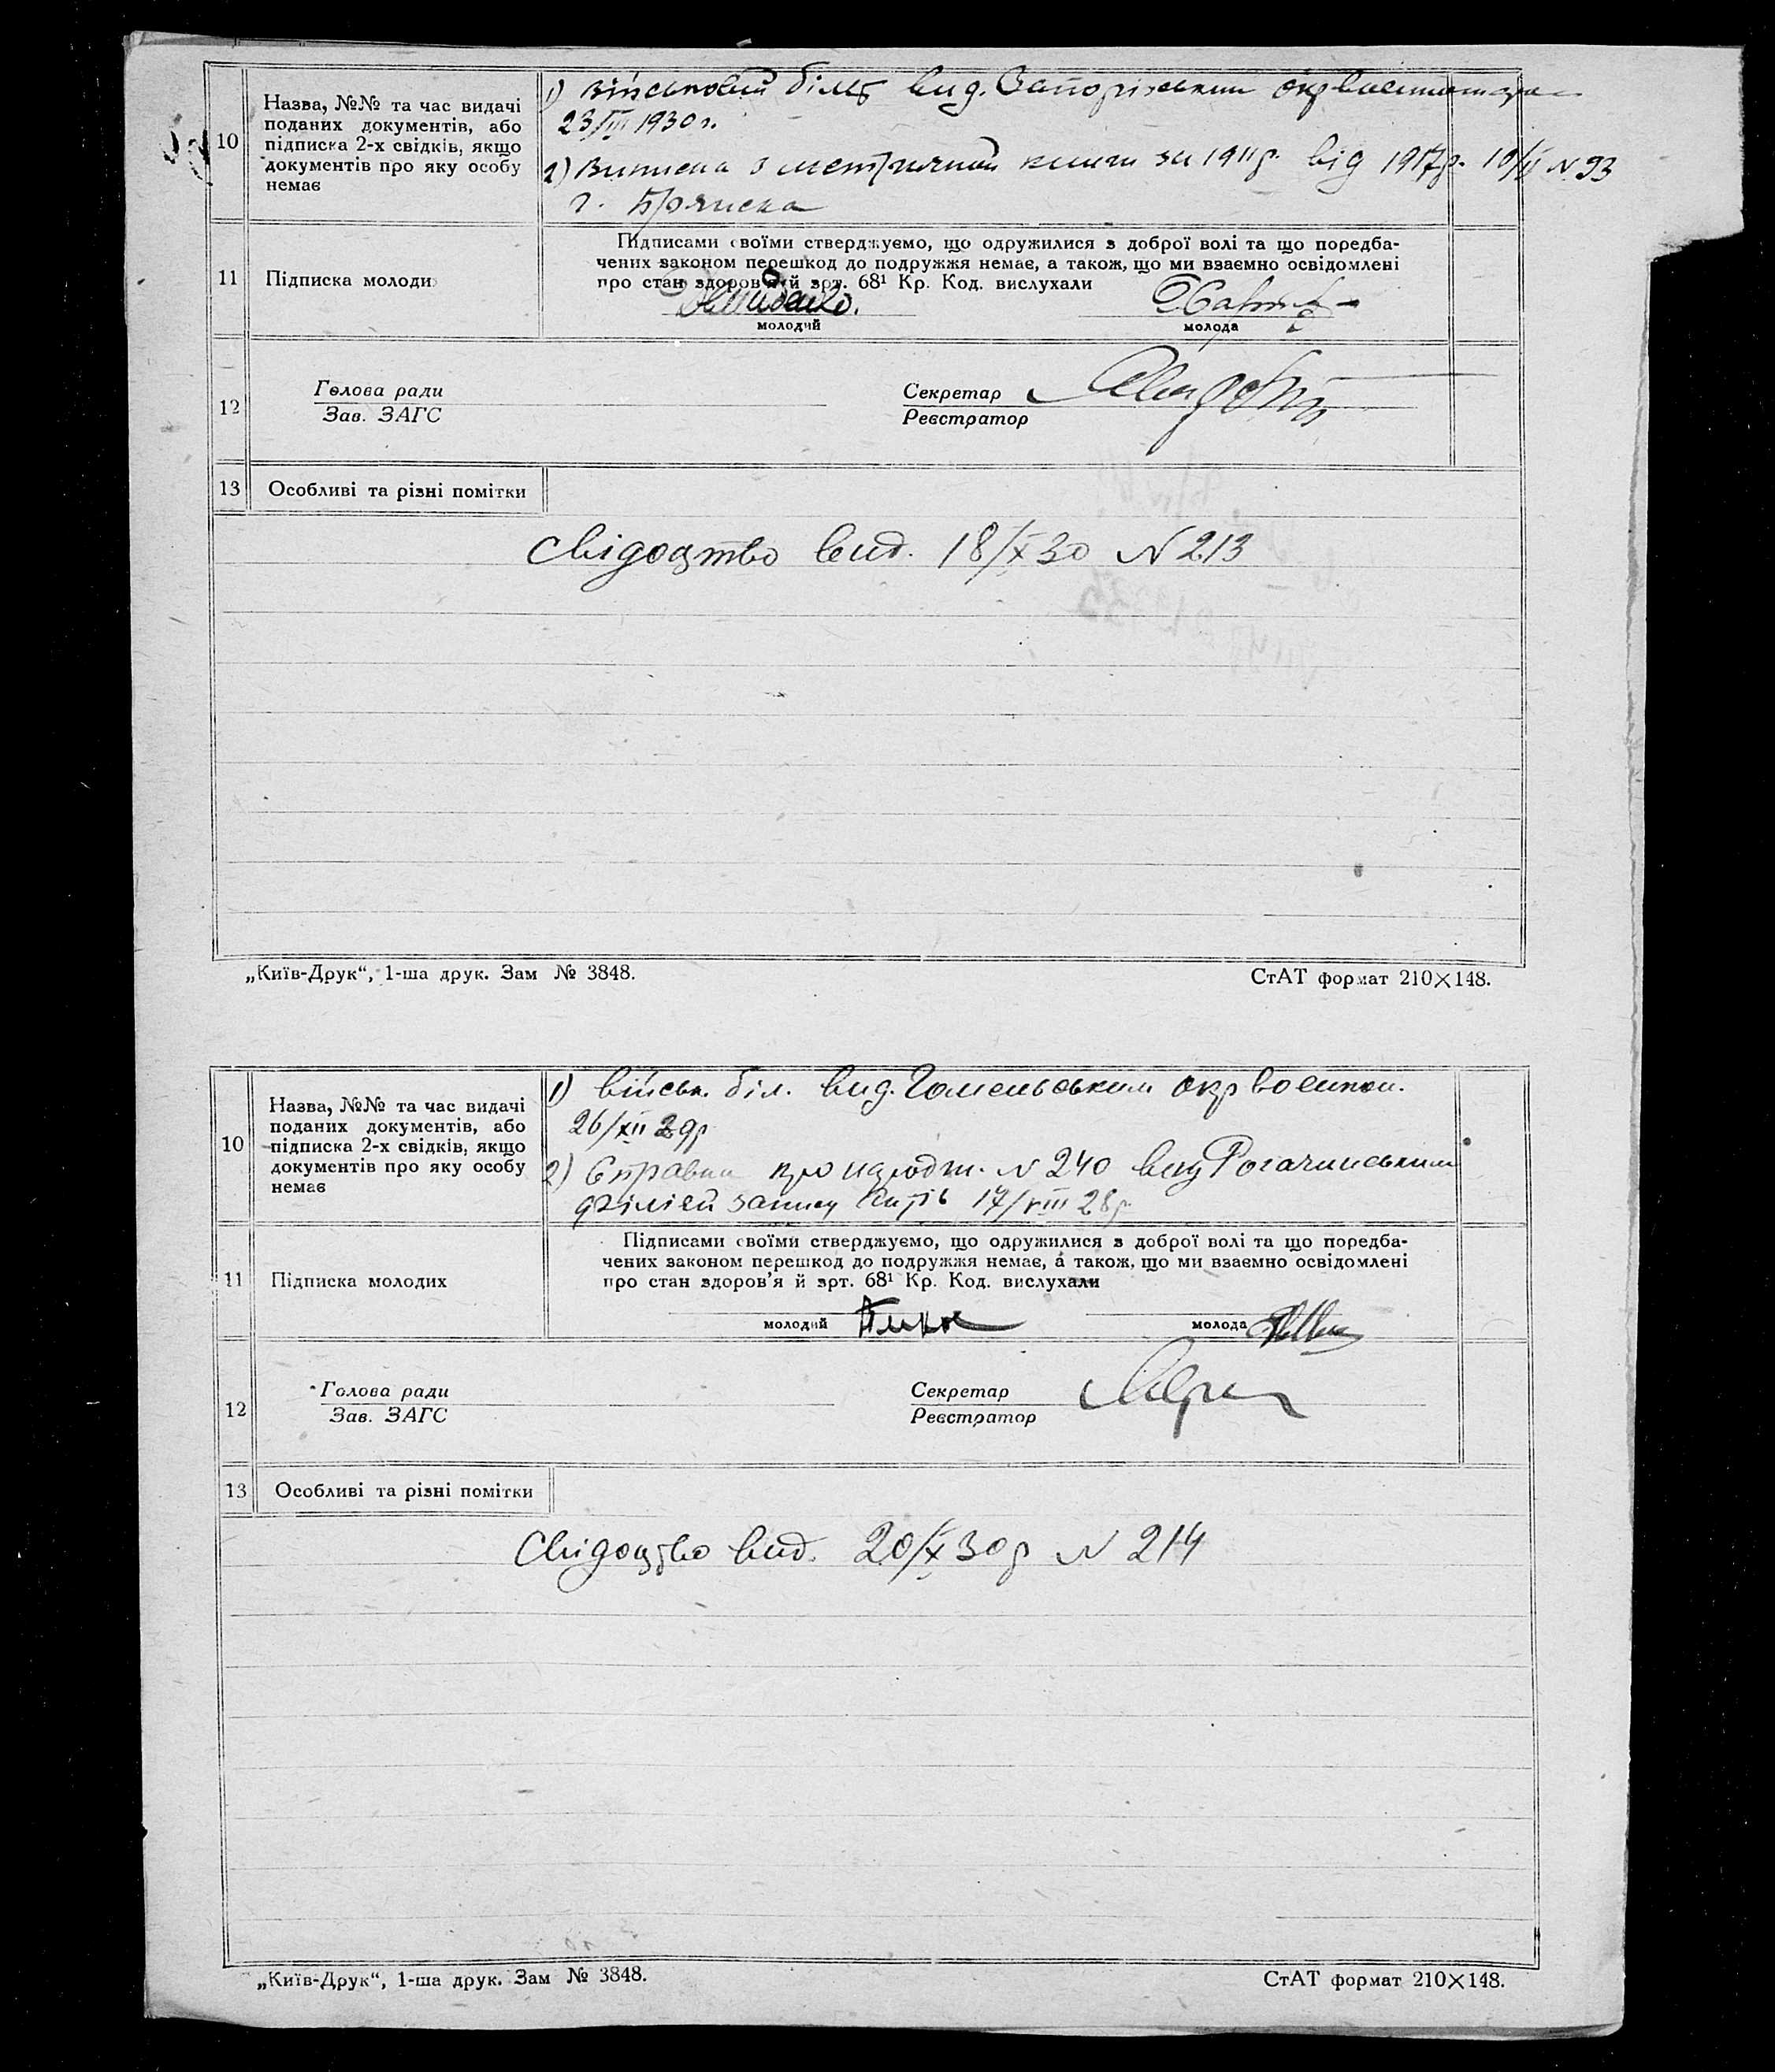 10
Назва, №№ та час видачі
поданих документів, або
підписка 2-х свідків, якщо
документів про яку особу
немає
1) Військовий білет вид. Запорізьким окрвоенкоматом
23/III 1930 г.
2) Виписка з метричной книги за 1911 р. від 1917 р. 10/II N 93
г. Брянска
11
Підписка молоди
Підписами своїми стверджуємо, що одружилися з доброї волі та що передба-
чених законом перешкод до подружжя немає, а також, що ми взаємно освідомлені
про стан здоров'я й арт. 68¹ Кр. Код. вислухали
молодий
молода
12
Голова ради
Зав. ЗАГС
Секретар
Реєстратор
13
Особливі та різні помітки
Свідоцтво вид. 18/X 30 N 213
„Київ-Друк“, 1-ша друк. Зам № 3848.
СтАТ формат 210×148.
10
Назва, №№ та час видачі
поданих документів, або
підписка 2-х свідків, якщо
документів про яку особу
немає
1) військ. біл. вид. Гомельським окрвоенком.
26/XII 29 р
2) Справка про народж. N 240 вид Рогачинським
філієй запису актів 17/VIII 28 р
11
Підписка молодих
Підписами своїми стверджуємо, що одружилися з доброї волі та що поредба-
чених законом перешкод до подружжя немає, а також, що ми взаємно освідомлені
про стан здоров'я й арт. 68¹ Кр. Код. вислухали
молодий
молода
12
Голова ради
Зав. ЗАГС
Секретар
Реєстратор
13
Особливі та різні помітки
Свідоцтво вид. 20/X 30 р N 214
„Київ-Друк“, 1-ша друк. Зам № 3848.
СтАТ формат 210×148.